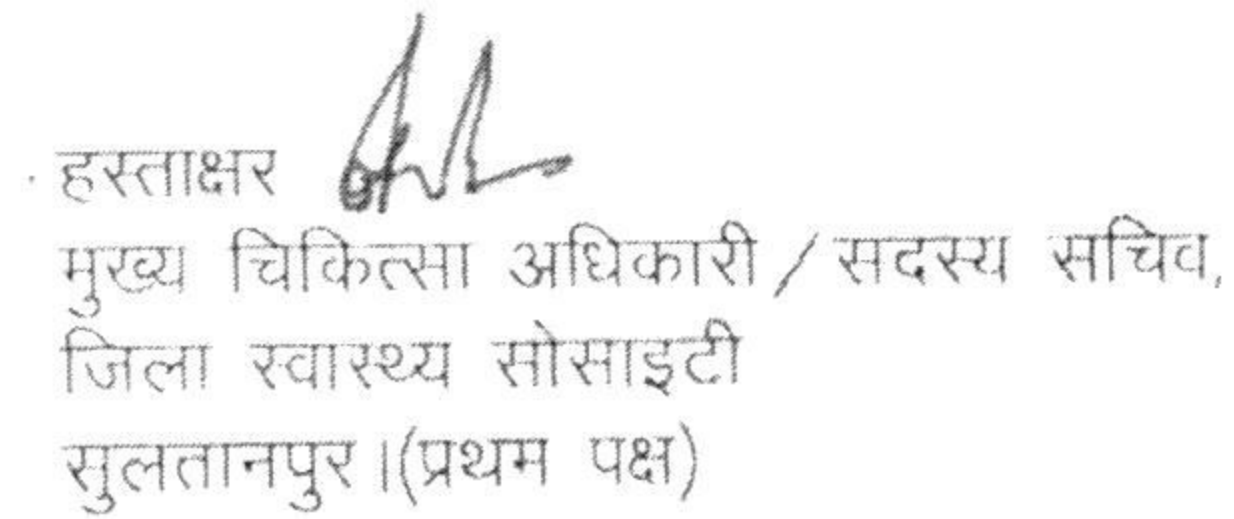 हस्ताक्षर
मुख्य चिकित्सा अधिकारी / सदस्य सचिव,
जिला स्वास्थ्य सोसाइटी
सुलतानपुर।(प्रथम पक्ष)